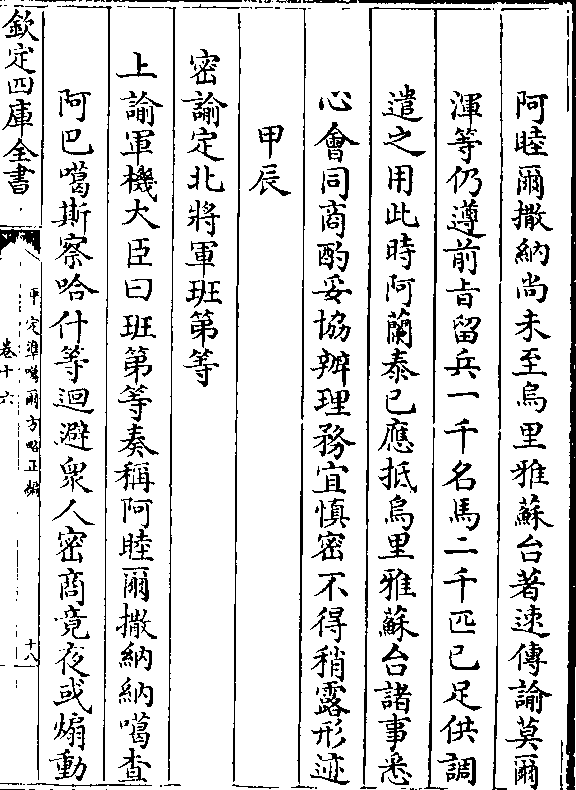 阿睦爾撒納尚未至烏里雅蘇台著速傳諭莫爾
渾等仍遵前旨留兵一千名馬二千匹已足供調
遣之用此時阿蘭泰已應抵烏里雅蘇台諸事悉
心會同商酌妥協辦理務宜慎密不得稍露形迹
甲辰
密諭定北將軍班第等
上諭軍機大臣曰班第等奏稱阿睦爾撒納納噶查
阿巴噶斯察哈什等迴避衆人密商竟夜或煽動
欽定四庫全書
平定準噶爾方略正編
卷十六
十八